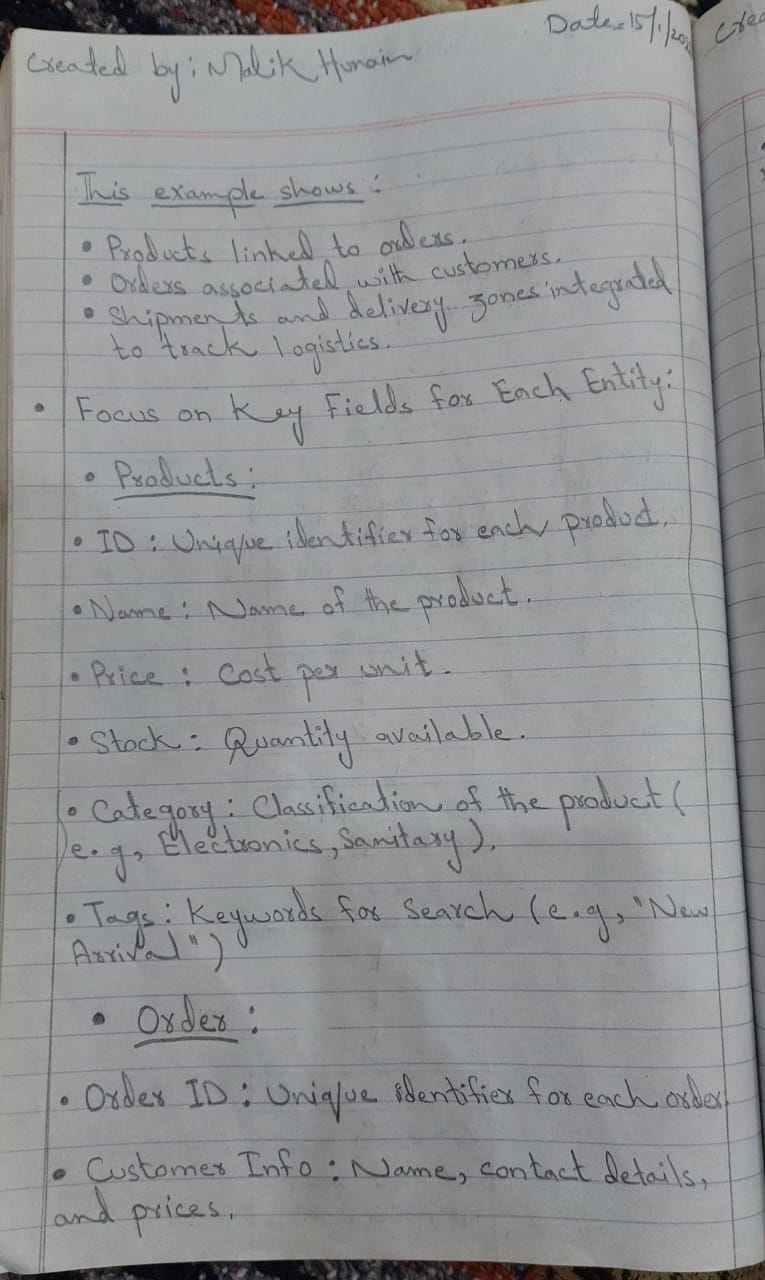 Created by: Malik Hunain
Date=15/1/20
Crea
This example shows:
• Products linked to orders.
• Orders associated with customers.
• Shipments and delivery zones integrated
to track logistics.
• Focus on Key Fields for Each Entity:
• Products:
• ID: Unique identifier for each product.
• Name: Name of the product.
• Price: Cost per unit.
• Stock: Quantity available.
• Category: Classification of the product (
e.g, Electronics, Sanitary).
• Tags: Keywords for Search (e.g, "New
Arrival")
• Order:
• Order ID: Unique identifier for each order
• Customer Info: Name, contact details,
and prices.